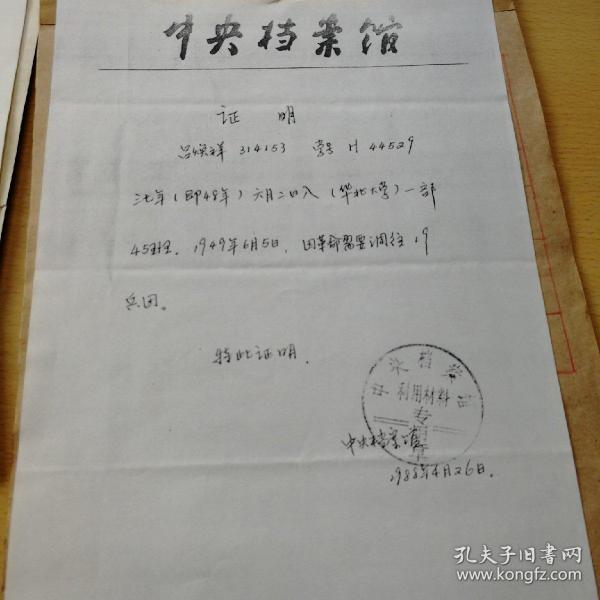 中央档案馆
证 明
吕焕祥 314153 索号 H 44529
三七年(即48年)六月二日入(华北大学)一部
45班。1949年6月5日,因革命需要调往19
兵团。
特此证明.
中央档案馆
利用材料
专用章
中央档案馆
1988年4月26日.
孔夫子旧书网
www.kongfz.com